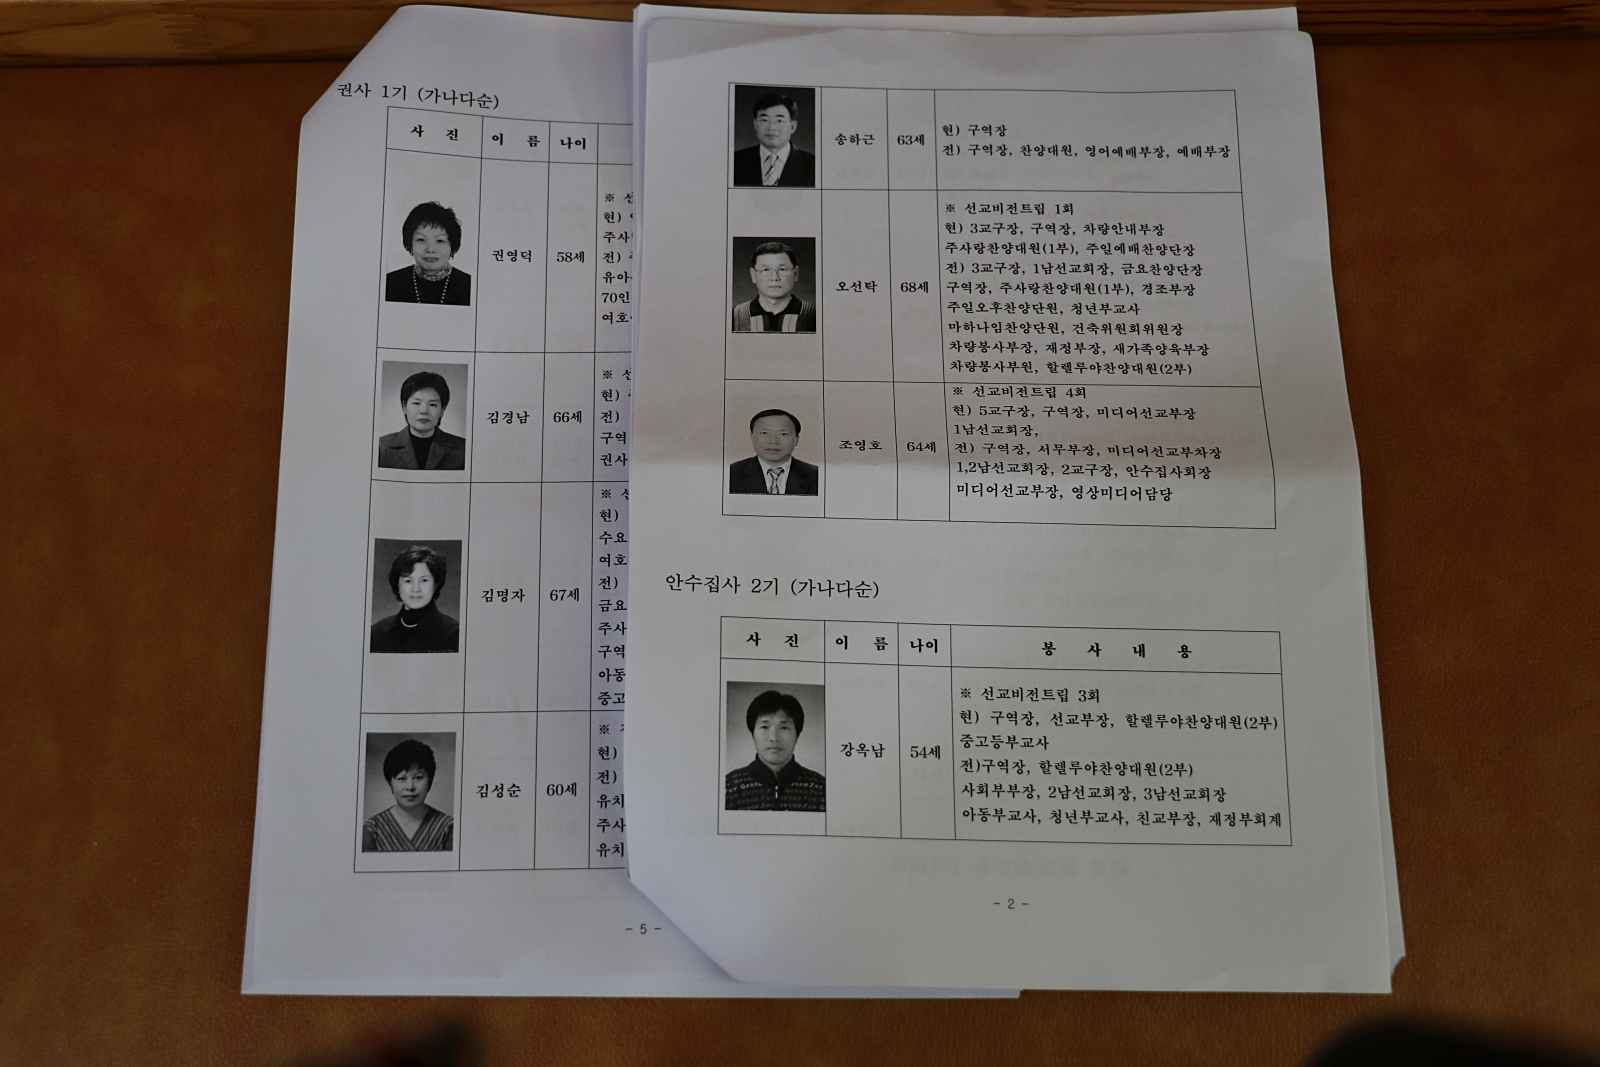 권사 1기 (가나다순)
사 진 이 름 나이
권영덕 58세
※
현)
주사
전)
유아
70인
여호
김경남 66세
※
현)
전)
구역
권사
김명자 67세
※
현)
수요
여호
전)
금요
주사
구역
아동
중고
김성순 60세
※
현)
전)
유치
주사
유치
- 5 -
송하근 63세
현) 구역장
전) 구역장, 찬양대원, 영어예배부장, 예배부장
오선탁 68세
※ 선교비전트립 1회
현) 3교구장, 구역장, 차량안내부장
주사랑찬양대원(1부), 주일예배찬양단장
전) 3교구장, 1남선교회장, 금요찬양단장
구역장, 주사랑찬양대원(1부), 경조부장
주일오후찬양단원, 청년부교사
마하나임찬양단원, 건축위원회위원장
차량봉사부장, 재정부장, 새가족양육부장
차량봉사부원, 할렐루야찬양대원(2부)
조영호 64세
※ 선교비전트립 4회
현) 5교구장, 구역장, 미디어선교부장
1남선교회장,
전) 구역장, 서무부장, 미디어선교부차장
1,2남선교회장, 2교구장, 안수집사회장
미디어선교부장, 영상미디어담당
안수집사 2기 (가나다순)
사 진 이 름 나이 봉 사 내 용
강옥남 54세
※ 선교비전트립 3회
현) 구역장, 선교부장, 할렐루야찬양대원(2부)
중고등부교사
전)구역장, 할렐루야찬양대원(2부)
사회부부장, 2남선교회장, 3남선교회장
아동부교사, 청년부교사, 친교부장, 재정부회계
- 2 -